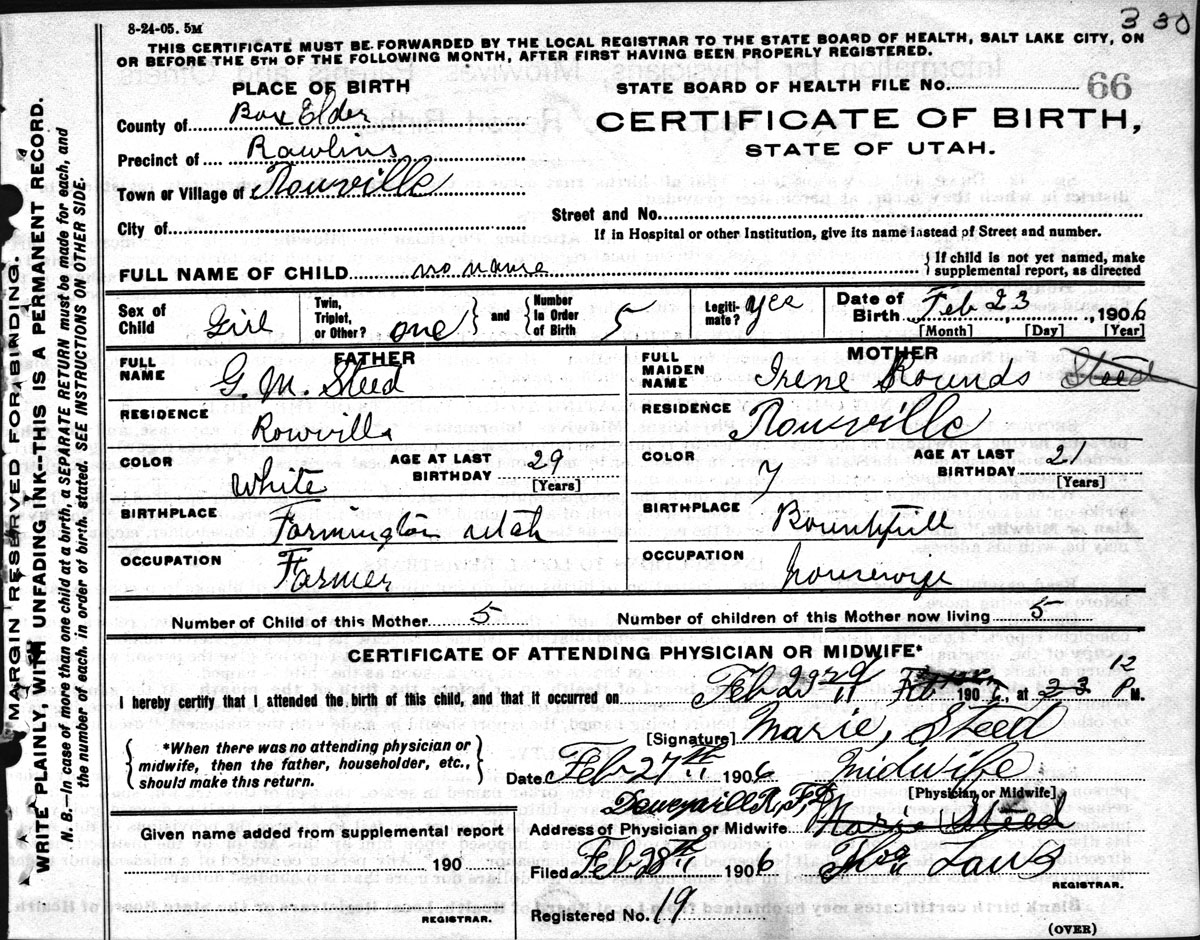 8-24-05. 5M
3 30
THIS CERTIFICATE MUST BE FORWARDED BY THE LOCAL REGISTRAR TO THE STATE BOARD OF HEALTH, SALT LAKE CITY, ON
OR BEFORE THE 5TH OF THE FOLLOWING MONTH, AFTER FIRST HAVING BEEN PROPERLY REGISTERED.
PLACE OF BIRTH
STATE BOARD OF HEALTH FILE No. 66
County of Box Elder
CERTIFICATE OF BIRTH,
Precinct of Rawlins
STATE OF UTAH.
Town or Village of
Street and No.
City of
If in Hospital or other Institution, give its name instead of Street and number.
FULL NAME OF CHILD no name
If child is not yet named, make
supplemental report, as directed
Sex of Child Girl
Twin, Triplet, or Other? one
and
Number In Order of Birth 5
Legiti- mate? yes
Date of Birth Feb 23, 1906
[Month] [Day] [Year]
FATHER
FULL NAME G. M. Steed
RESIDENCE
COLOR White
AGE AT LAST BIRTHDAY 29
[Years]
BIRTHPLACE Farmington Utah
OCCUPATION Farmer
MOTHER
FULL MAIDEN NAME Irene Rounds Steed
RESIDENCE
COLOR
AGE AT LAST BIRTHDAY 21
[Years]
BIRTHPLACE
OCCUPATION housewife
Number of Child of this Mother 5
Number of children of this Mother now living 5
CERTIFICATE OF ATTENDING PHYSICIAN OR MIDWIFE*
I hereby certify that I attended the birth of this child, and that it occurred on Feb 23rd Feb 1906. at 23 12 P M.
[Signature] Marie, Steed
*When there was no attending physician or
midwife, then the father, householder, etc.,
should make this return.
Date Feb 27th 1906 Midwife
[Physician or Midwife]
Given name added from supplemental report
190
REGISTRAR.
Address of Physician or Midwife Marie Steed
Filed Feb 28th 1906 Laws
REGISTRAR.
Registered No. 19
(OVER)
MARGIN RESERVED FOR BINDING.
WRITE PLAINLY, WITH UNFADING INK--THIS IS A PERMANENT RECORD.
N. B.--In case of more than one child at a birth, a SEPARATE RETURN must be made for each, and
the number of each, in order of birth, stated. SEE INSTRUCTIONS ON OTHER SIDE.